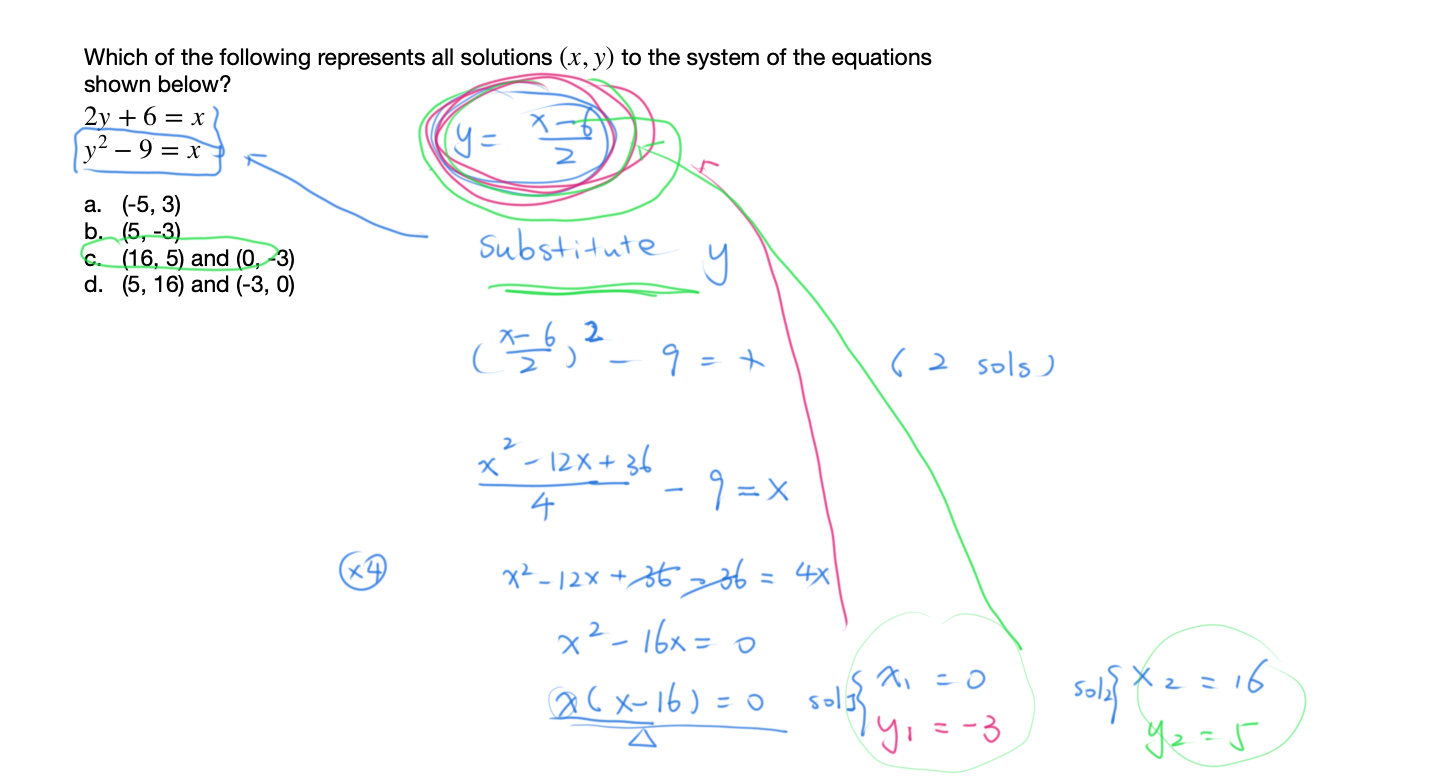 Which of the following represents all solutions (x, y) to the system of the equations
shown below?
2y + 6 = x
y² − 9 = x
a. (-5, 3)
b. (5, -3)
c. (16, 5) and (0, -3)
d. (5, 16) and (-3, 0)
y = (x-6)/2
substitute y
((x-6)/2)² - 9 = x
(2 sols)
(x² - 12x + 36)/4 - 9 = x
×4
x² - 12x + 36 - 36 = 4x
x² - 16x = 0
x(x-16) = 0
sol1 { x₁ = 0
y₁ = -3
sol2 { x₂ = 16
y₂ = 5